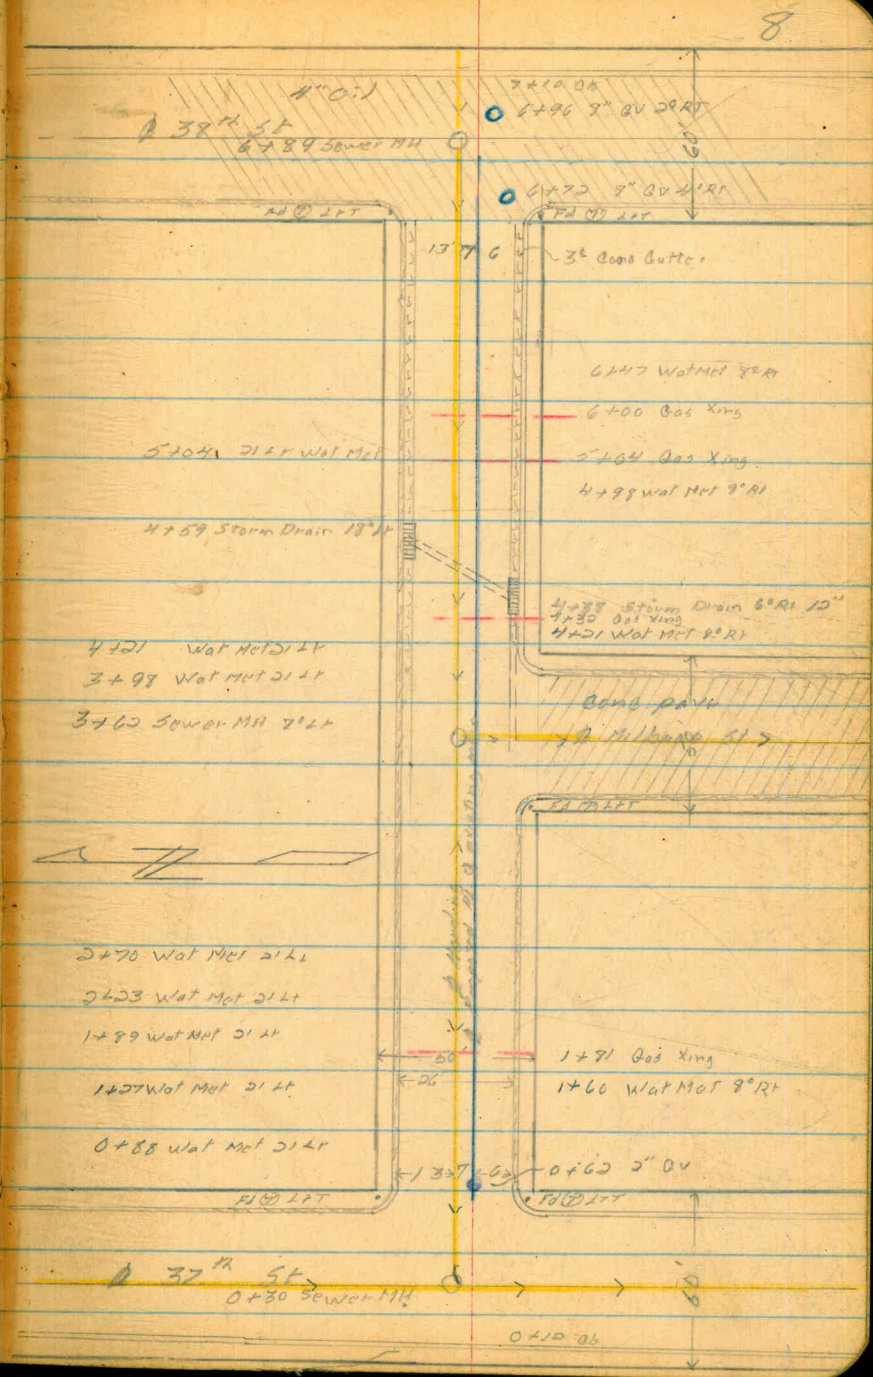 8
4" Oil
7+10 ab
6+96 8" GV 2° RT
60'
38th St
6+89 Sewer MH
6+72 8" GV 4° Rt
Fd L&T
Fd L&T
13' 7 6
3' Conc Gutter
6+47 Wat Met 8° Rt
6+00 Gas Xing
5+04 21 Lt Wat Met
5+04 Gas Xing
4+98 Wat Met 8° Rt
4+59 Storm Drain 18° Lt
4+38 Storm Drain 6° Rt 12"
4+32 Gas Xing
4+21 Wat Met 8° Rt
4+21 Wat Met 21 Lt
3+98 Wat Met 21 Lt
Conc pave
3+62 Sewer MH 7° Lt
St
Fd L&T
existing
2+70 Wat Met 21 Lt
2+23 Wat Met 21 Lt
1+89 Wat Met 21 Lt
50'
1+81 Gas Xing
26'
1+27 Wat Met 21 Lt
1+60 Wat Met 8° Rt
0+88 Wat Met 21 Lt
13 7 6
0+62 2" GV
Fd L&T
Fd L&T
37th St
0+30 Sewer MH
60'
0+10 ab